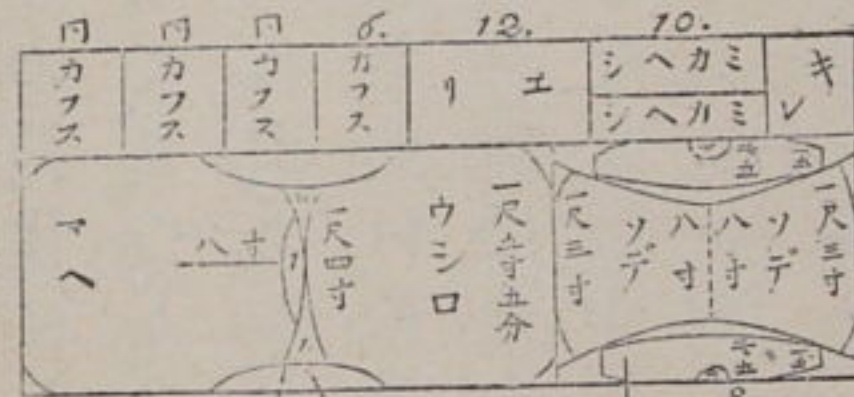 同 同 同 6. 12. 10.
カフス
カフス
カフス
カフス
エリ
ミカヘシ
ミカヘシ
キレ
マヘ
八寸
一尺四寸
ウシロ
一尺五寸五分
一尺三寸
ソデ
八寸
八寸
ソデ
一尺三寸